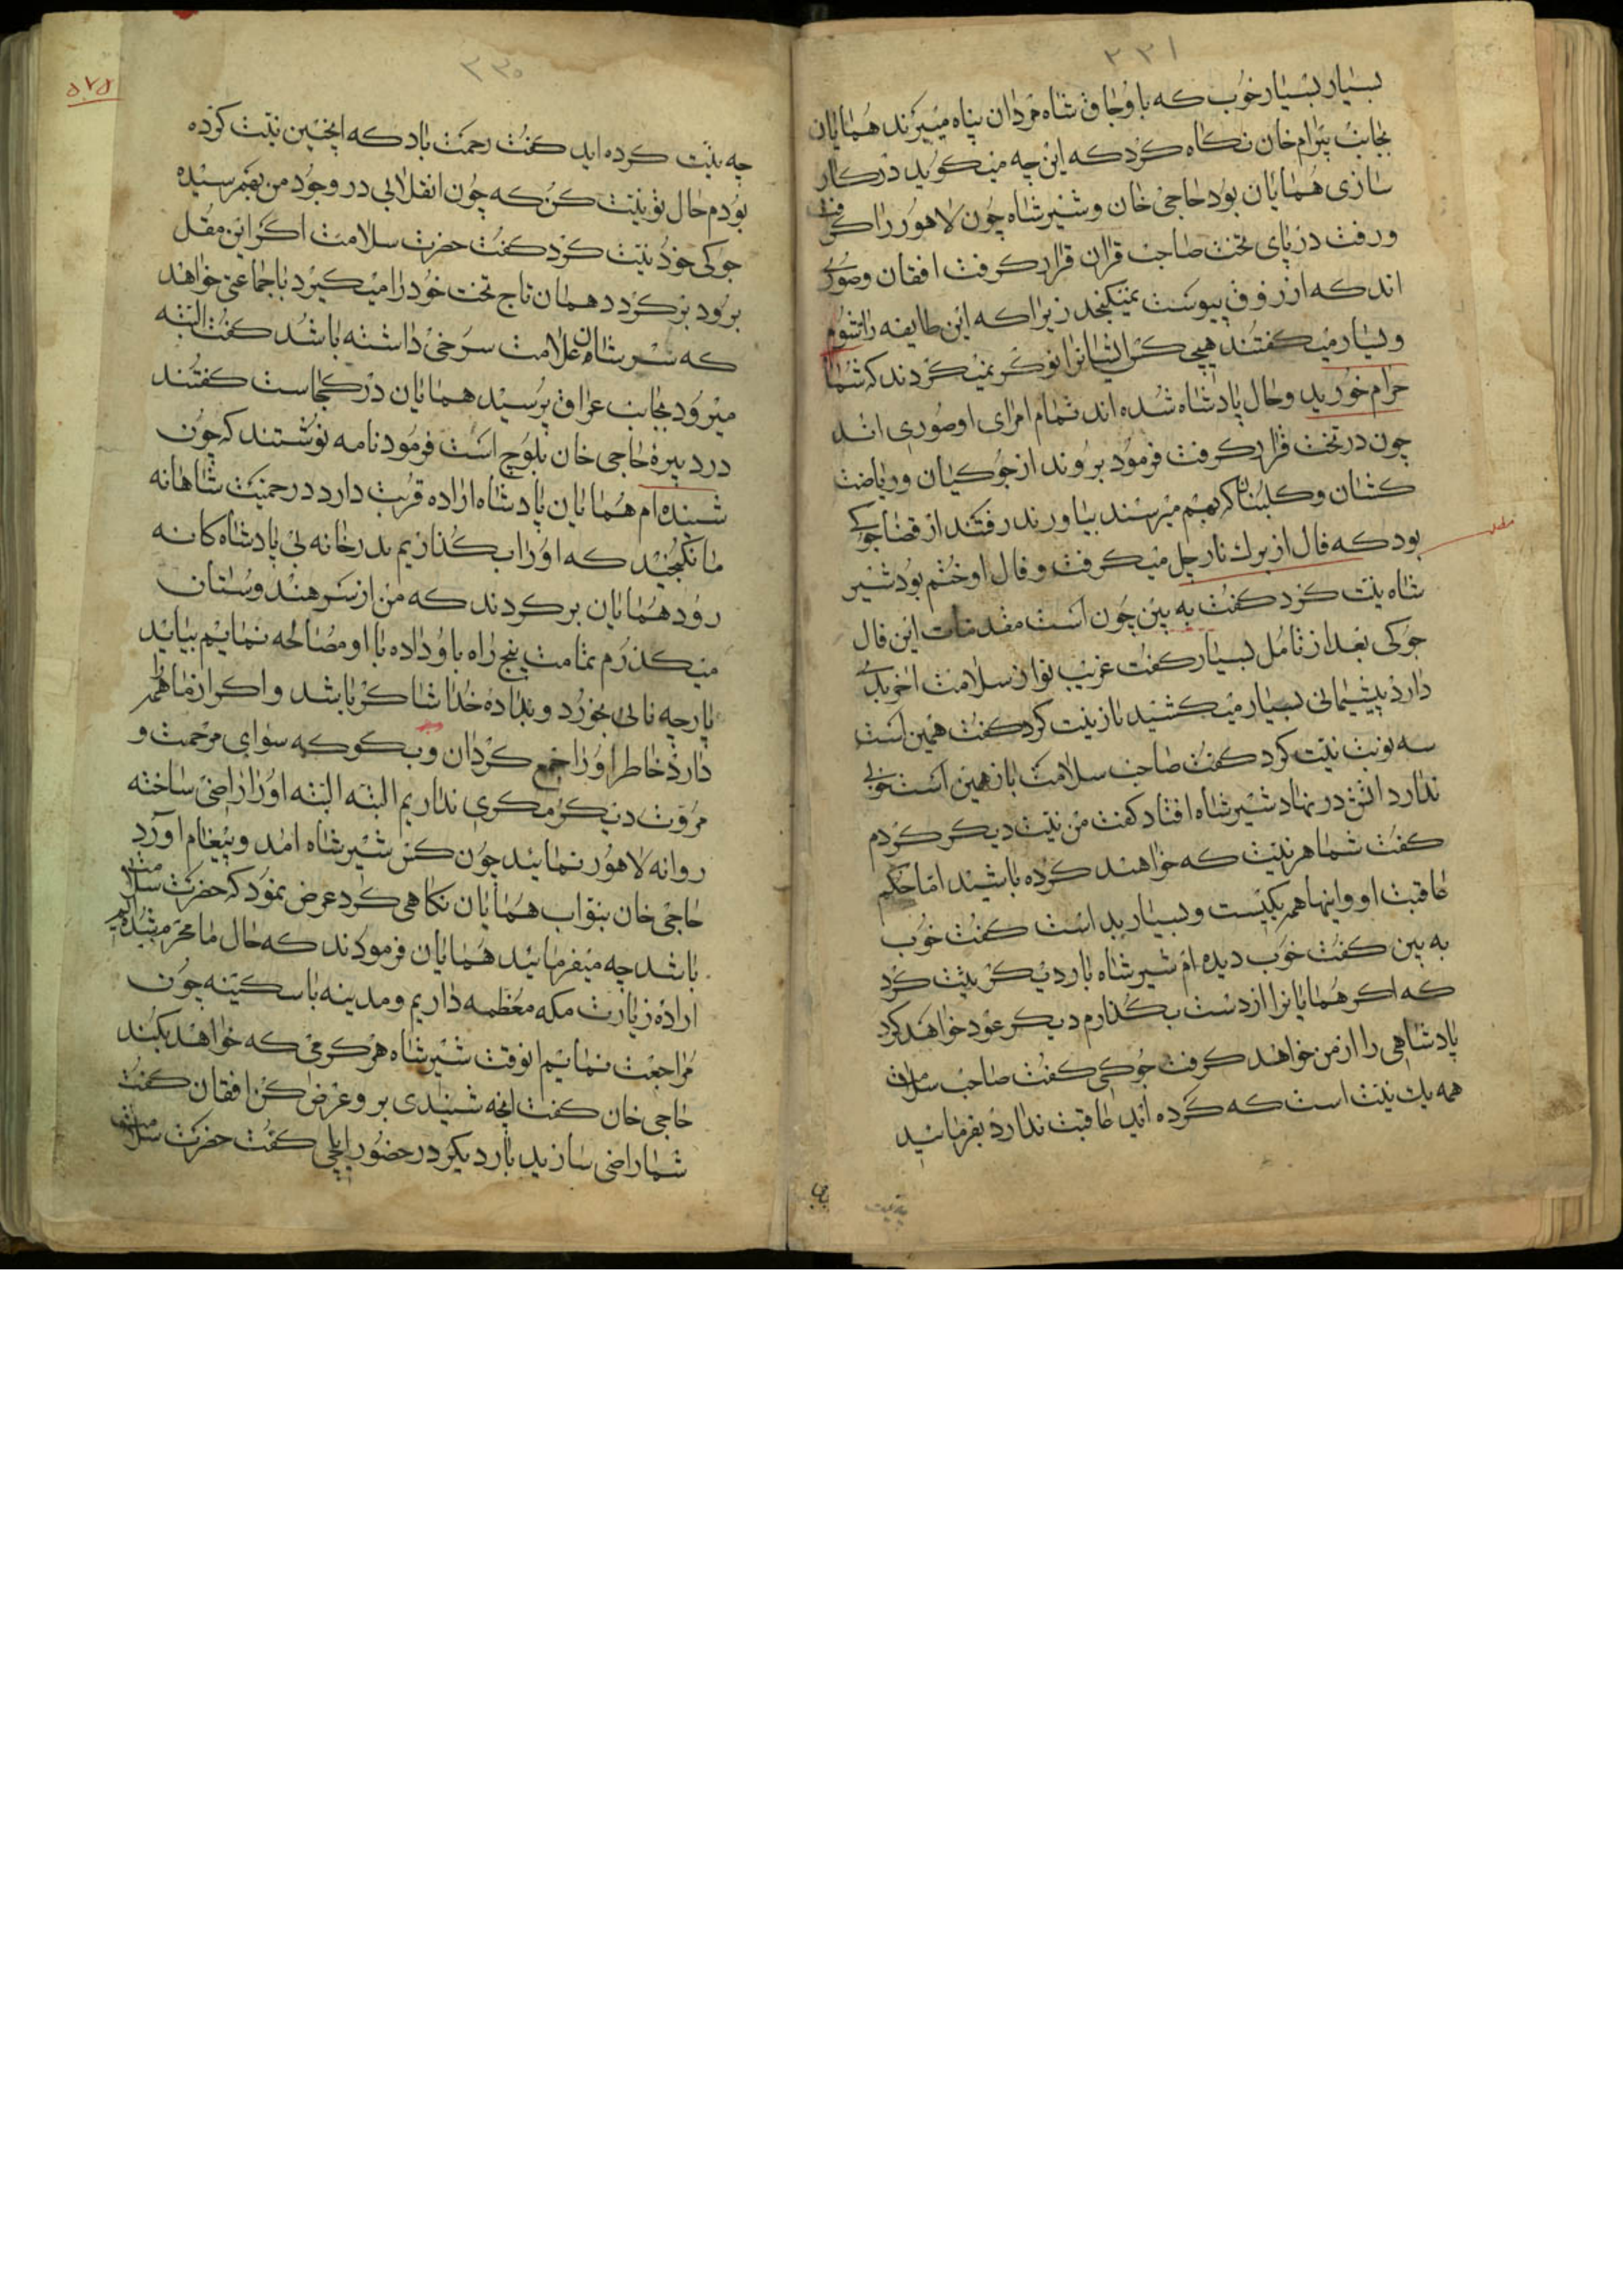 ۳۳۱
بسیار بسیار خوب که باوجاق شاه مردان پناه میبرند همایان
بجانب بیرام خان نکاه کرد که این چه میکوید در کار
سازی همایان بود حاجی خان و شیر شاه چون لاهور را کرفت
و رفت در پای تخت صاحب قران قرار کرفت افغان وصوری
اند که از زوق بپوست نمیکنجد زیرا که این طایفه را شوم
و بسیار میکفتند هیچ کس ایشانرا نوکر نمیکردند که شما
حرام خورید و حال پادشاه شده اند تمام امرای او صوری اند
چون در تخت قرار کرفت فرمود بروند از جوکیان و ریاضت
کشان و کلبنان که بهم میرسند بیاورند رفتند از قضا جوکی
بود که فال از برك نارجل میکرفت و فال او ختم بود شیر
شاه نیت کرد کفت به بین چون است مقدمات این فال
جوکی بعد از تامل بسیار کفت غریب نواز سلامت آخر بدی
دارد پشیمانی بسیار میکشید باز نیت کرد کفت همین است
سه نوبت نیت کرد کفت صاحب سلامت باز همین است خوبی
ندارد اتش در نهاد شیر شاه افتاد کفت من نیت دیکر کردم
کفت شما هر نیت که خواهند کرده باشید اما حکم
عاقبت او و اینها همه یکیست و بسیار بد است کفت خوب
به بین کفت خوب دیده ام شیر شاه بار دیکر نیت کرد
که اکر همایانرا از دست بکذارم دیکر عود خواهد کرد
پادشاهی را از من خواهد کرفت جوکی کفت صاحب سلامت
همه یك نیت است که کرده اید عاقبت ندارد بفرمائید
۳۳۰
۵۷۴
چه نیت کرده اید کفت رحمت باد که اینچنین نیت کرده
بودم حال تو نیت کن که چون انقلابی در وجود من بهم رسیده
جوکی خود نیت کرد کفت حضرت سلامت اکر این مقل
برود بر کردد همان تاج تخت خود را میکیرد با جماعتی خواهد
که بر سر شان علامت سرخی داشته باشد کفت البته
میرود بجانب عراق پرسید همایان در کجاست کفتند
در دیره حاجی خان بلوچ است فرمود نامه نوشتند که چون
شنیده ام همایان پادشاه اراده قربت دارد در حمیت شاهانه
ما نکنجید که او را بکذاریم بدرخانه بی پادشاه کانه
رود همایان بر کردند که من از سر هندوستان
میکذرم بتامت پنج راه باو داده با او مصالحه نمایم بیاید
پارچه نانی بخورد و بداده خدا شاکر باشد و اکر از ما هم
دارد خاطر او را جمع کردان و بکو که سوای مرحمت و
مروت دیکر مکری نداریم البته البته او را راضی ساخته
روانه لاهور نمایید چون کس شیر شاه امد و پیغام اورد
حاجی خان بنواب همایان نکاهی کرد عرض نمود که حضرت سلامت
باشد چه میفرمائید همایان فرمودند که حال ما محرم شده ایم
اراده زیارت مکه معظمه داریم و مدینه با سکینه چون
مراجعت نمائیم انوقت شیر شاه هر کرمی که خواهد بکند
حاجی خان کفت انچه شنیدی برو عرض کن افقان کفت
شما راضی سازید بار دیکر در حضور ایلچی کفت حضرت سلامت